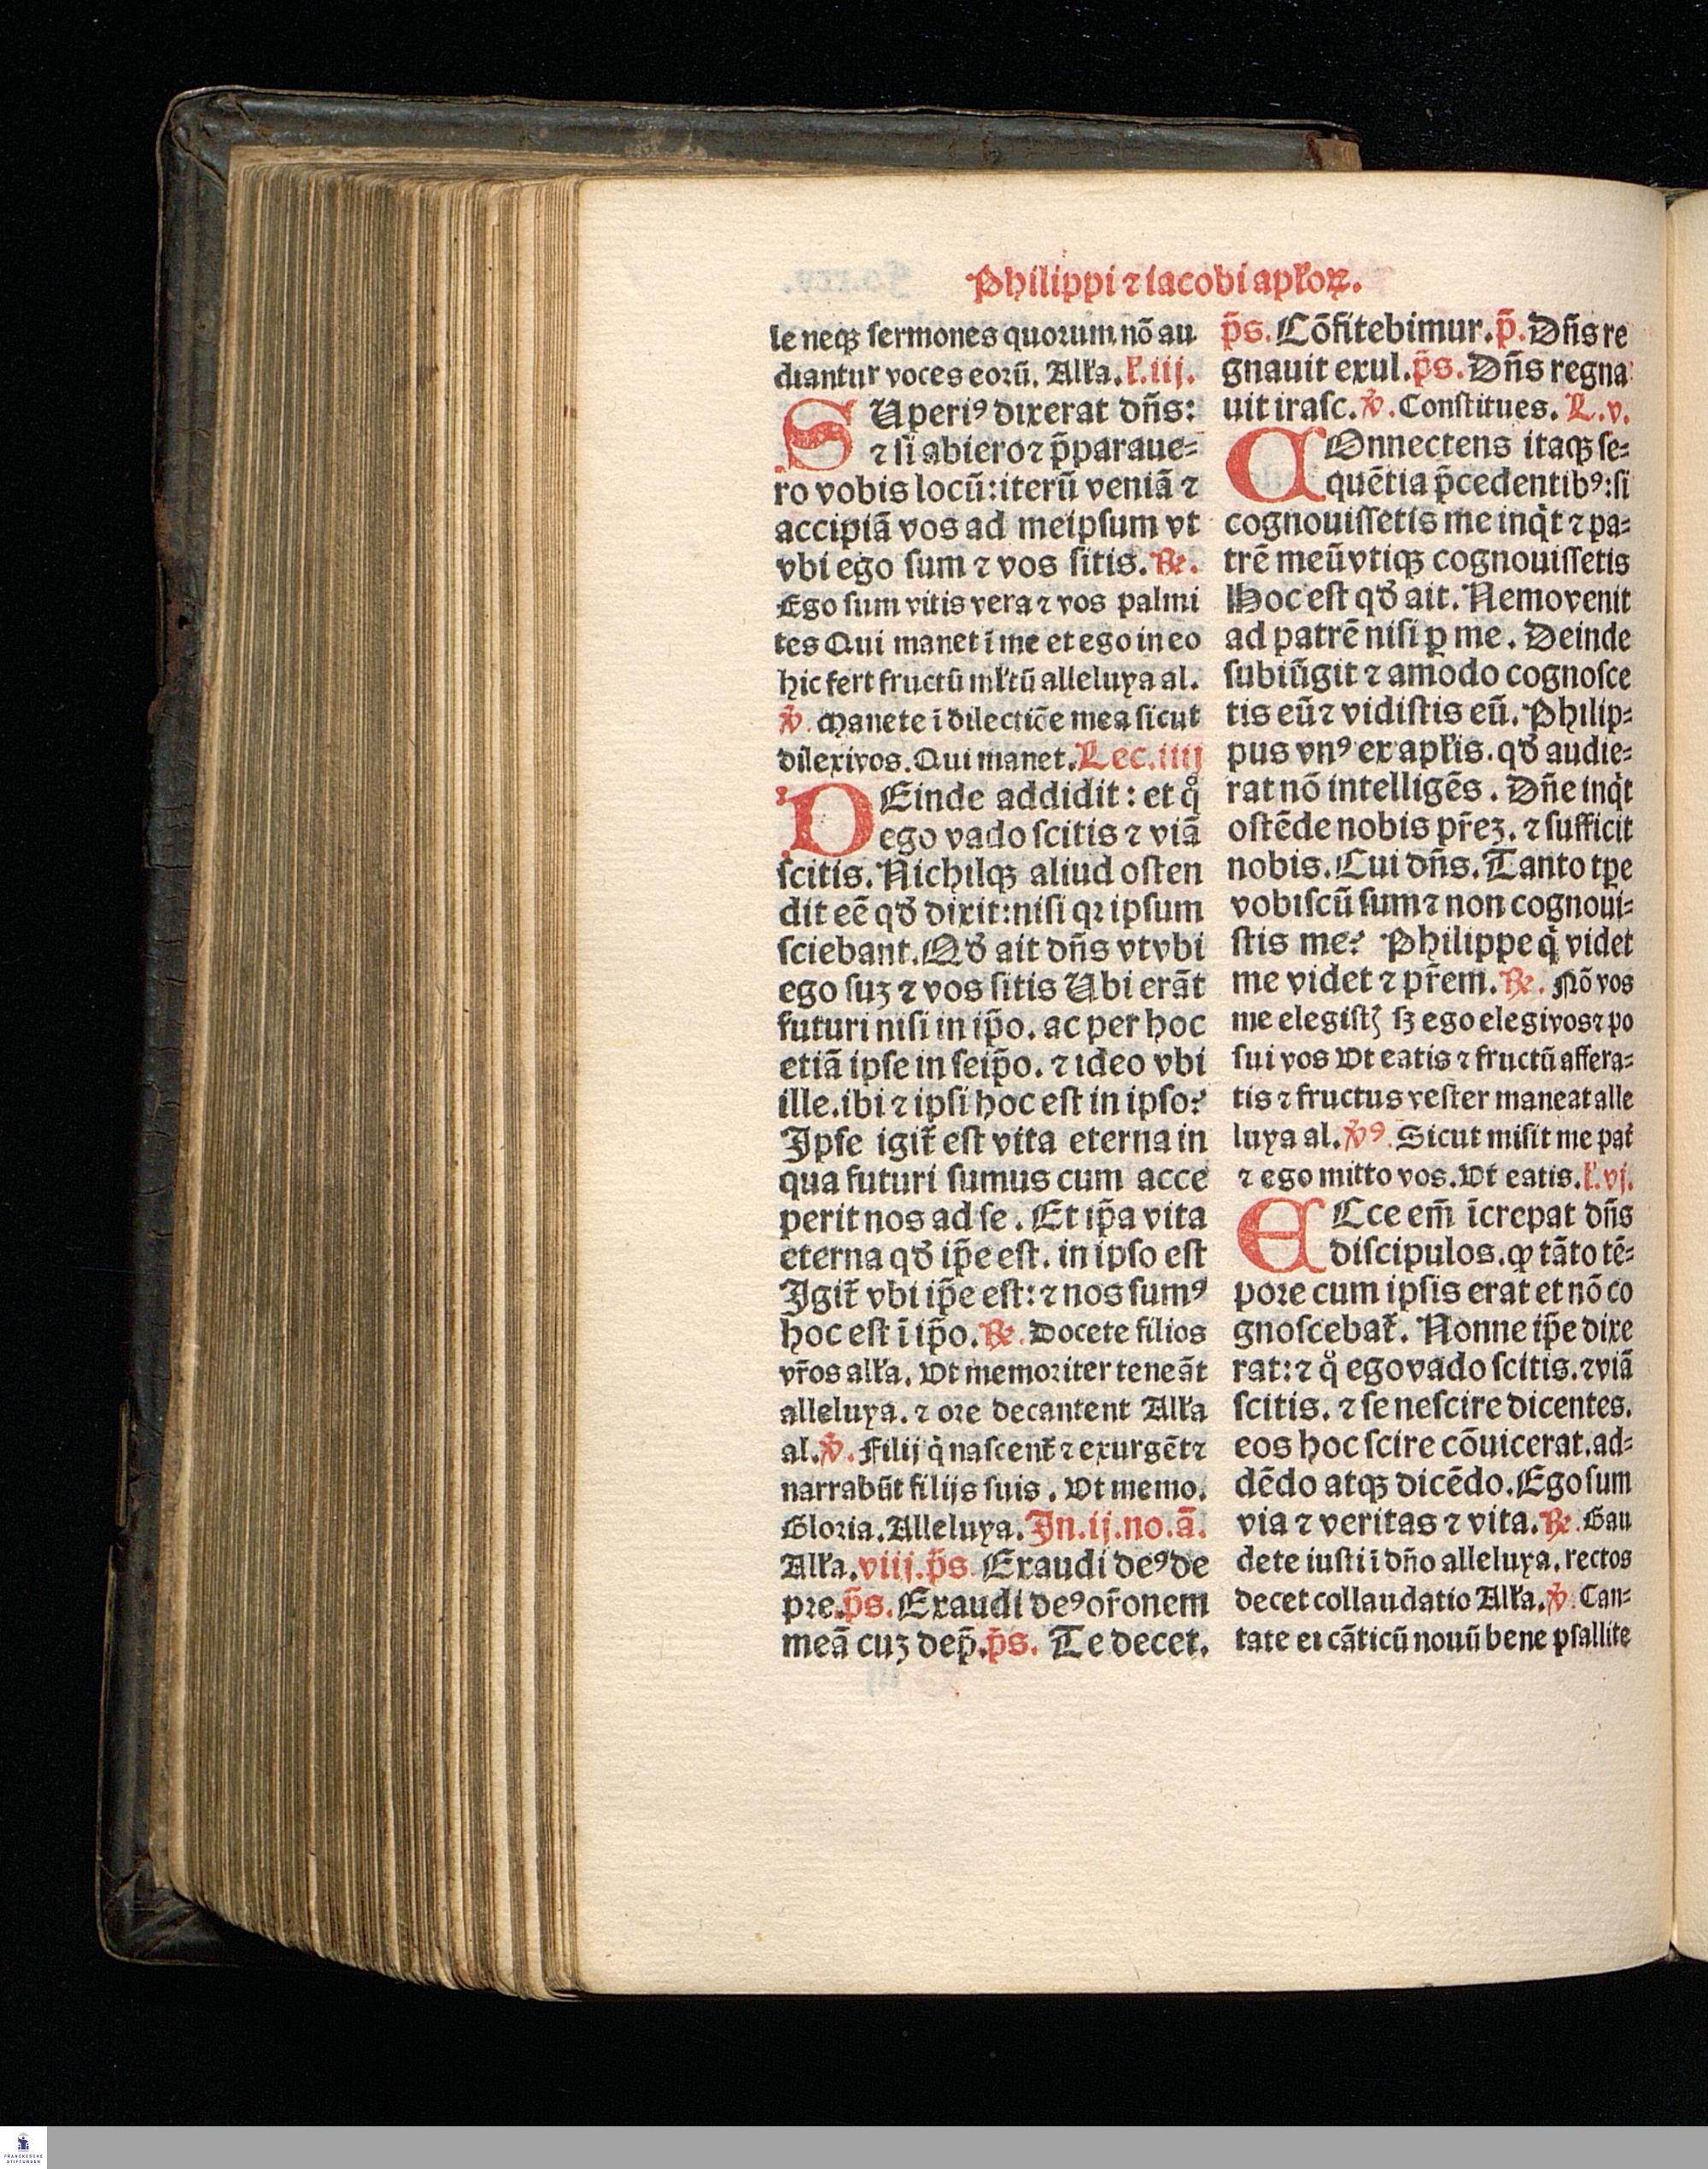 Philippi ⁊ iacobi apl'oꝝ.
le neqꝫ sermones quorum nō au
diantur voces eorū. All'a. l'.iij.
SUperi⁹ dixerat dn̄s:
⁊ si abiero ⁊ p̄paraue-
ro vobis locū: iterū veniā ⁊
accipiā vos ad meipsum vt
vbi ego sum ⁊ vos sitis. ℞.
Ego sum vitis vera ⁊ vos palmi
tes Qui manet ī me et ego in eo
hic fert fructū ml'tū alleluya al.
℣. Manete ī dilectiōe mea sicut
dilexi vos. Qui manet. Lec. iiij
DEinde addidit: et qͦ
ego vado scitis ⁊ viā
scitis. Nichilqꝫ aliud osten
dit eē qđ dixit: nisi qꝛ ipsum
sciebant. Qđ ait dn̄s vt vbi
ego suꝫ ⁊ vos sitis Ubi erāt
futuri nisi in ip̄o. ac per hoc
etiā ipse in seip̄o. ⁊ ideo vbi
ille. ibi ⁊ ipsi hoc est in ipso?
Ipse igit̄ est vita eterna in
qua futuri sumus cum acce
perit nos ad se. Et ip̄a vita
eterna qđ ip̄e est. in ipso est
Igit̄ vbi ip̄e est: ⁊ nos sum⁹
hoc est ī ip̄o. ℞. Docete filios
vr̄os all'a. Vt memoriter teneāt
alleluya. ⁊ ore decantent All'a
al. ℣. Filij qͥ nascent̄ ⁊ exurgēt ⁊
narrabūt filijs suis. Vt memo.
Gloria. Alleluya. In. ij. no. ā.
All'a. viij. p̄s Exaudi de⁹ de
pre. p̄s. Exaudi de⁹ or̄onem
meā cuꝫ dep̄. p̄s. Te decet.
p̄s. Cōfitebimur. p̄. Dn̄s re
gnauit exul. p̄s. Dn̄s regna
uit irasc. ℣. Constitues. L. v.
COnnectens itaqꝫ se-
quētia p̄cedentib⁹: si
cognouissetis me inqͥt ⁊ pa-
trē meū vtiqꝫ cognouissetis
Hoc est qđ ait. Nemo venit
ad patrē nisi ꝑ me. Deinde
subiūgit ⁊ amodo cognosce
tis eū ⁊ vidistis eū. Philip-
pus vn⁹ ex apl'is. qđ audie-
rat nō intelligēs. Dn̄e inqͥt
ostēde nobis pr̄eꝫ. ⁊ sufficit
nobis. Cui dn̄s. Tanto tꝑe
vobiscū sum ⁊ non cognoui-
stis me? Philippe qͥ videt
me videt ⁊ pr̄em. ℞. Nō vos
me elegistꝭ sꝫ ego elegi vos ⁊ po
sui vos Vt eatis ⁊ fructū affera-
tis ⁊ fructus vester maneat alle
luya al. ℣⁹. Sicut misit me pat̄
⁊ ego mitto vos. Vt eatis. l'. vj.
ECce em̄ īcrepat dn̄s
discipulos. ꝙ tāto tē-
pore cum ipsis erat et nō co
gnoscebat̄. Nonne ip̄e dixe
rat: ⁊ qͦ ego vado scitis. ⁊ viā
scitis. ⁊ se nescire dicentes.
eos hoc scire cōuicerat. ad-
dēdo atqꝫ dicēdo. Ego sum
via ⁊ veritas ⁊ vita. ℞. Gau
dete iusti ī dn̄o alleluya. rectos
decet collaudatio All'a. ℣. Can-
tate ei cāticū nouū bene psallite
FRANCKESCHE
STIFTUNGEN